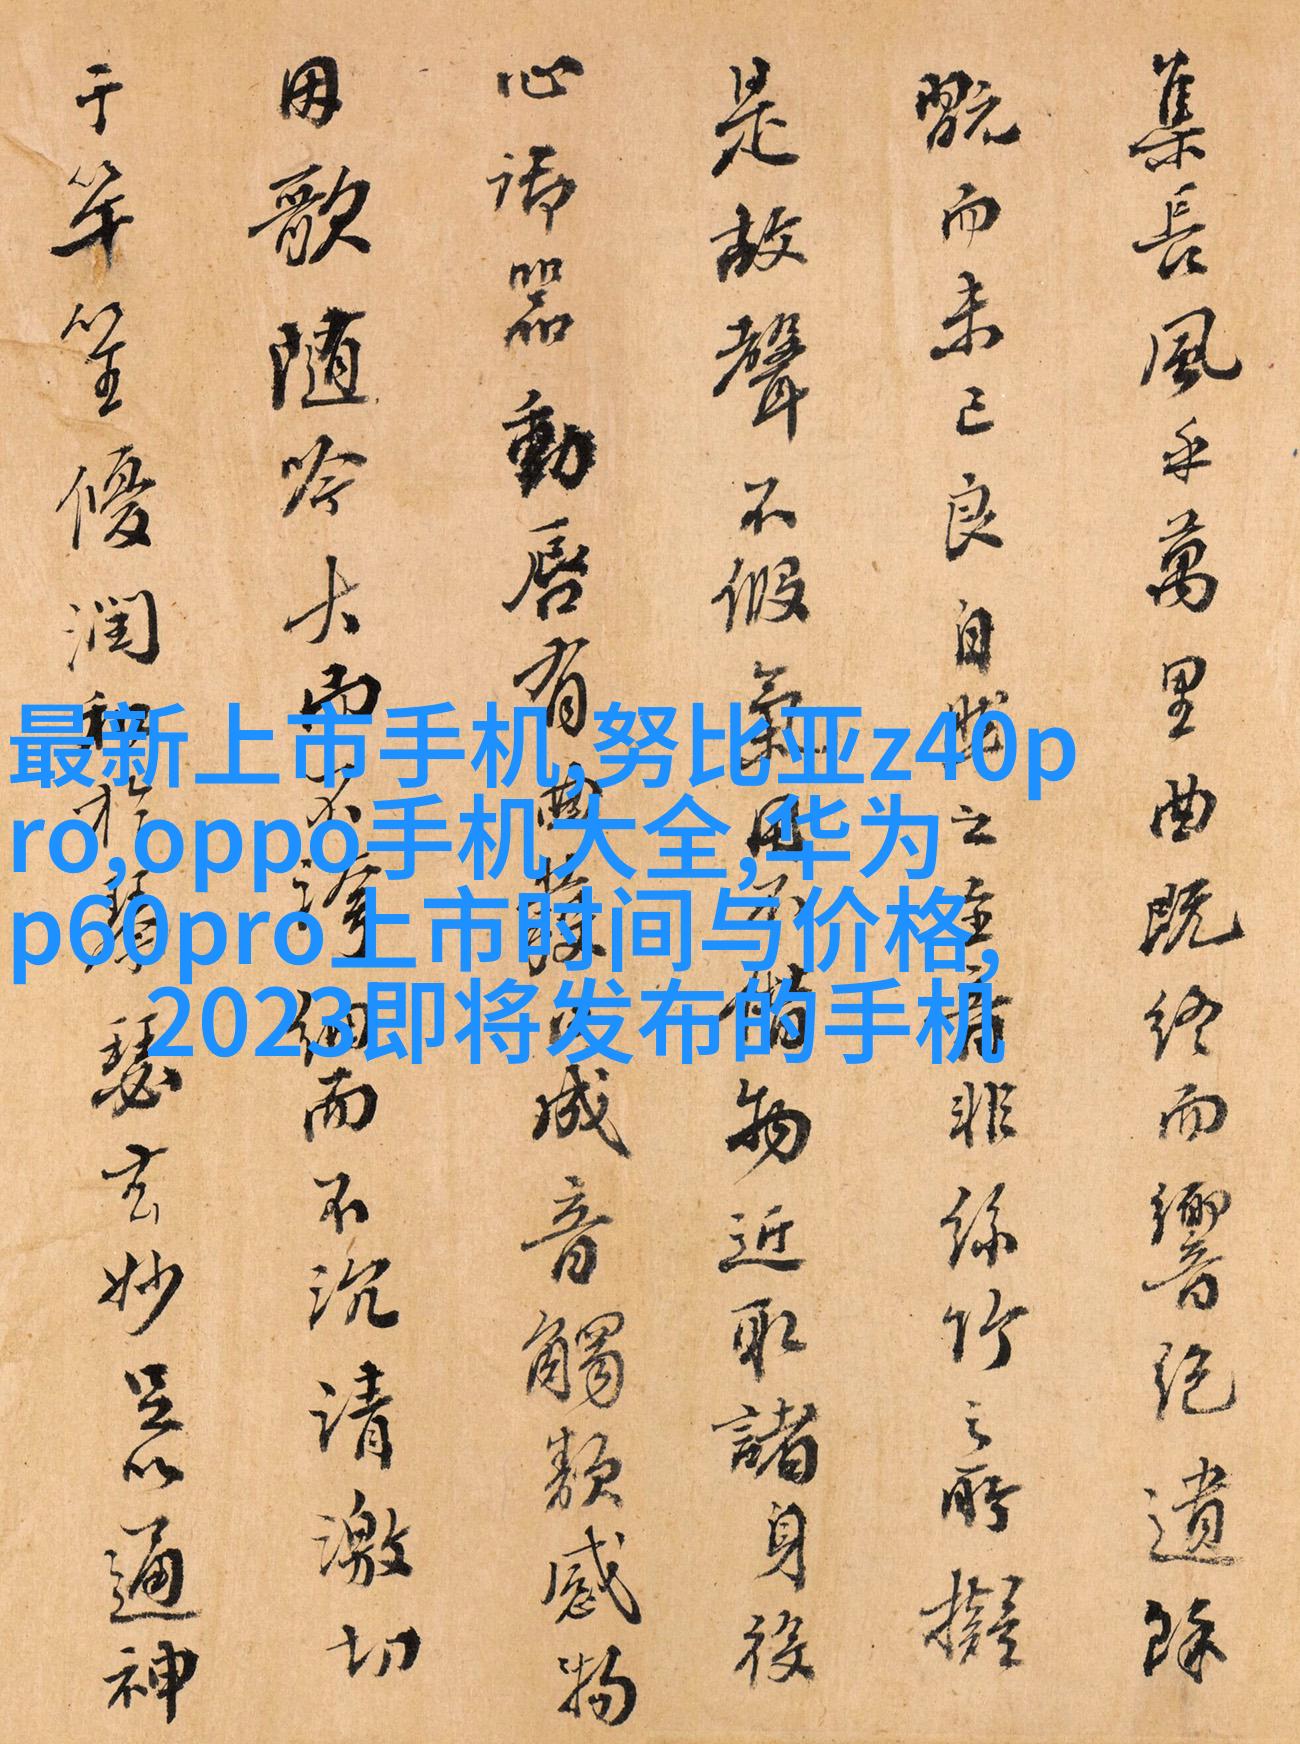 集長風乎萬里曲既終而響絕遺餘
翫而未已良自然之至音非絲竹之所擬
是故聲不假氣用不借物近取諸身役
心御器動唇有曲發口成音觸類感物
因歌隨吟大而不誇細而不沉清激切
于竽笙優潤和於琴瑟玄妙足以通神
最新上市手机,努比亚z40p
ro,oppo手机大全,华为
p60pro上市时间与价格,
2023即将发布的手机